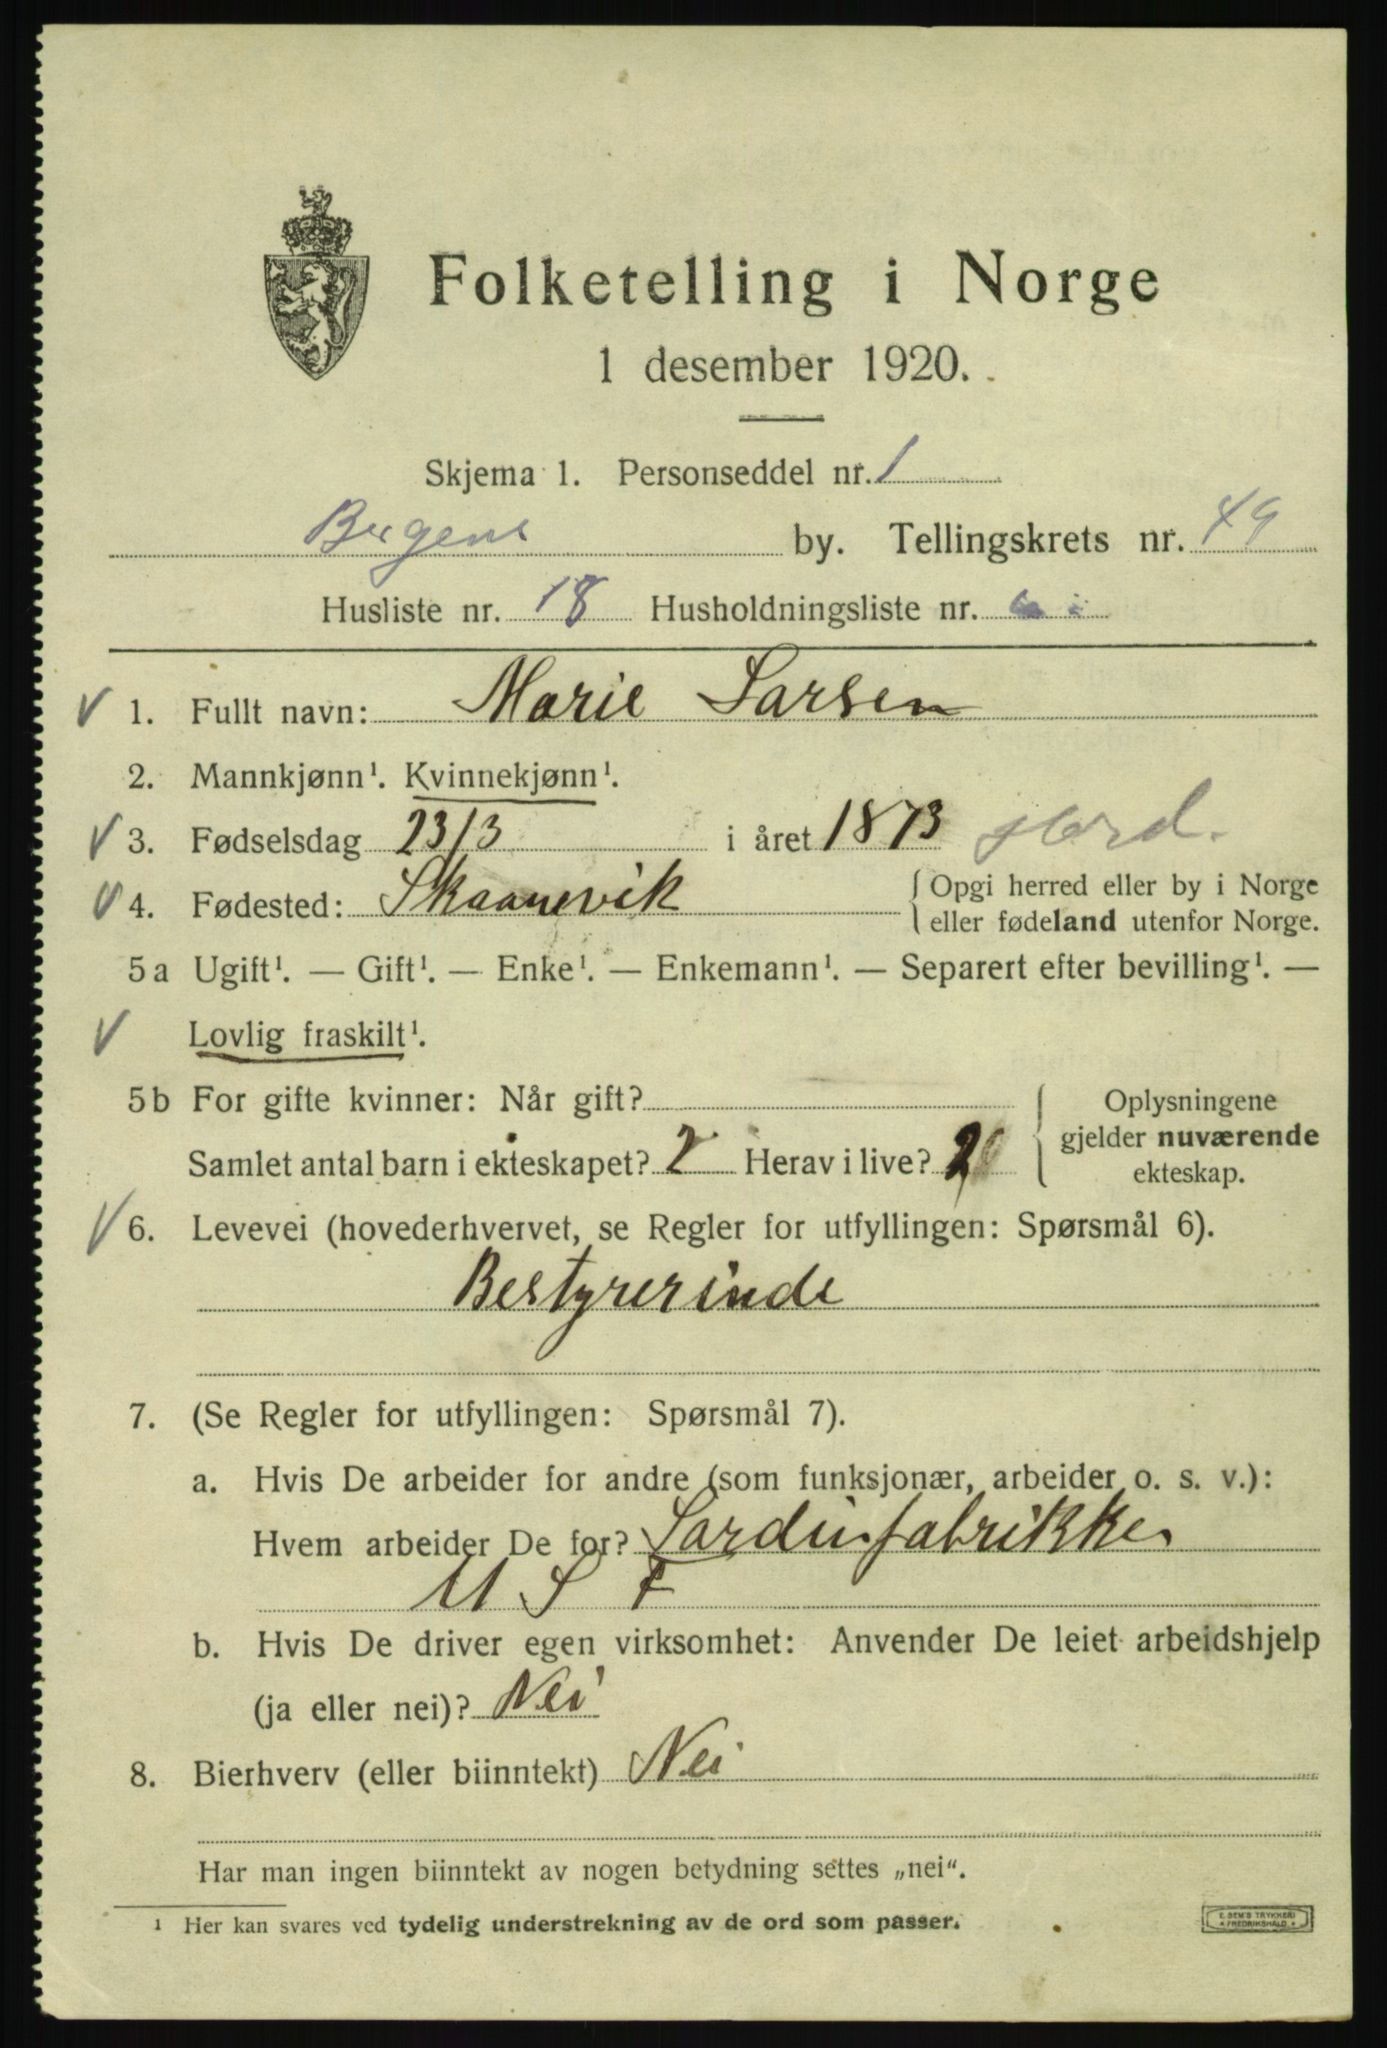 Folketelling i Norge
1 desember 1920.
Skjema 1. Personseddel nr. 1
Bergens by. Tellingskrets nr. 49
Husliste nr. 18 Husholdningsliste nr.
1. Fullt navn: Marie Larsen
2. Mannkjønn¹. Kvinnekjønn¹.
3. Fødselsdag 23/3 i året 1873 Hord.
4. Fødested: Skaanevik { Opgi herred eller by i Norge
eller fødeland utenfor Norge.
5a Ugift¹. — Gift¹. — Enke¹. — Enkemann¹. — Separert efter bevilling¹. —
Lovlig fraskilt¹.
5b For gifte kvinner: Når gift? { Oplysningene
gjelder nuværende
Samlet antal barn i ekteskapet? 2 Herav i live? 2 ekteskap.
6. Levevei (hovederhvervet, se Regler for utfyllingen: Spørsmål 6).
Bestyrerinde
7. (Se Regler for utfyllingen: Spørsmål 7).
a. Hvis De arbeider for andre (som funksjonær, arbeider o. s. v.):
Hvem arbeider De for? Sardinfabrikken
U S F
b. Hvis De driver egen virksomhet: Anvender De leiet arbeidshjelp
(ja eller nei)? Nei
8. Bierhverv (eller biinntekt) Nei
Har man ingen biinntekt av nogen betydning settes „nei“.
¹ Her kan svares ved tydelig understrekning av de ord som passer.
E. SEM'S TRYKKERI
FREDRIKSHALD